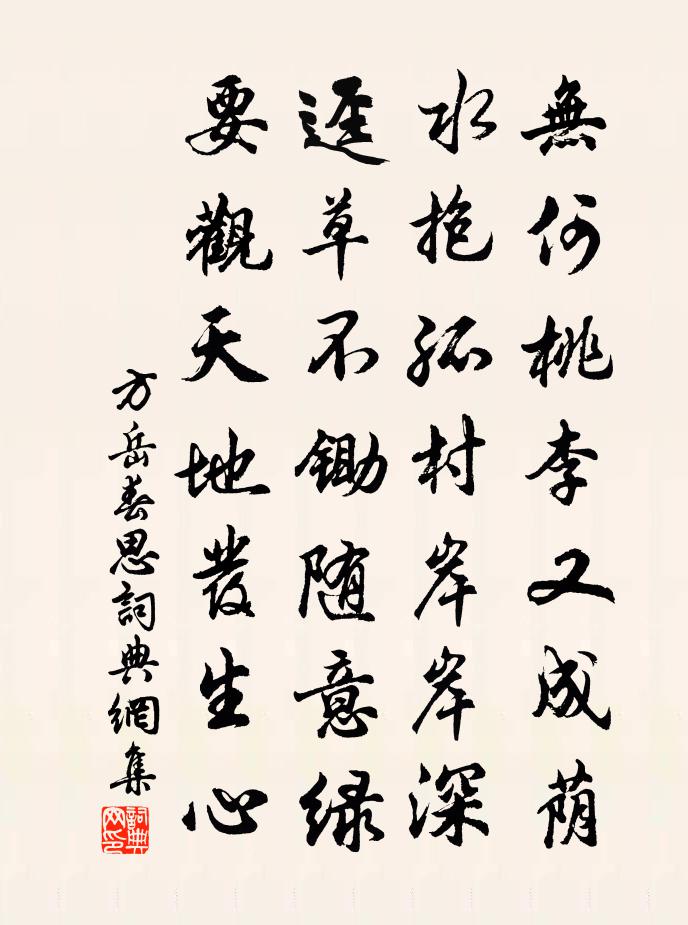 無何桃李又成荫
水抱孤村岸岸深
逕草不鋤随意绿
要觀天地發生心
方岳春思詞典網集
詞典网印